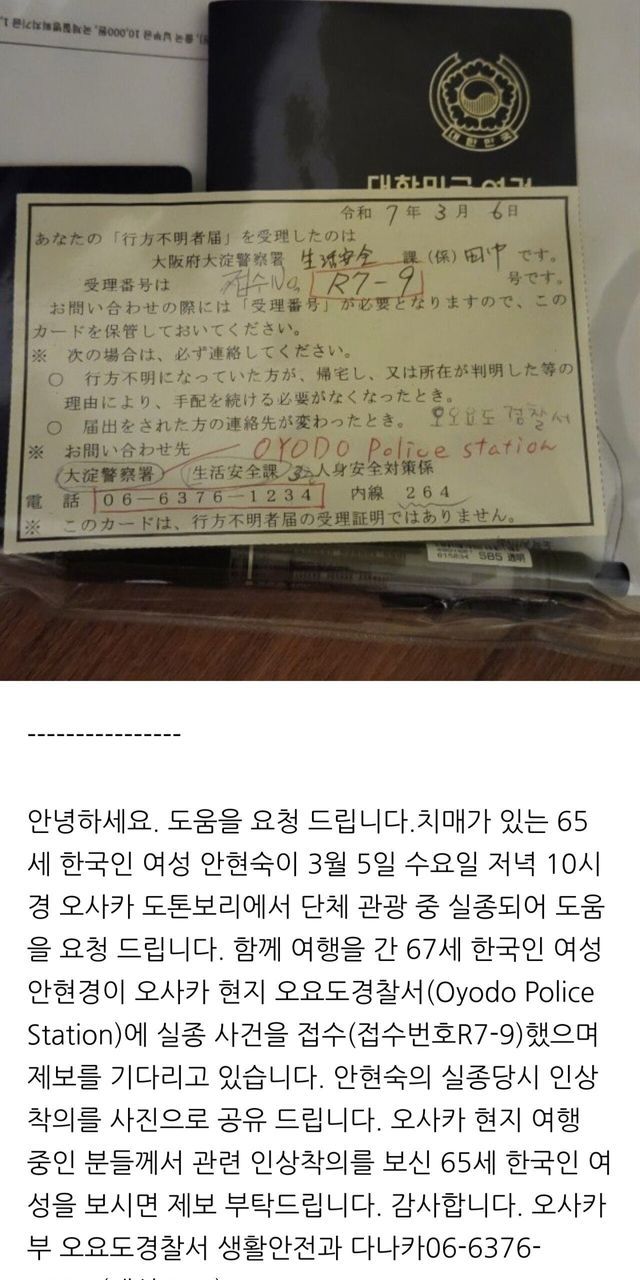 대한민국
대한민국 여권
令和 7 年 3 月 6 日
あなたの「行方不明者届」を受理したのは
大阪府大淀警察署 生活安全 課 (係) 田中 です。
受理番号は 접수No. R7-9 号です。
お問い合わせの際には「受理番号」が必要となりますので、この
カードを保管しておいてください。
※ 次の場合は、必ず連絡してください。
○ 行方不明になっていた方が、帰宅し、又は所在が判明した等の
理由により、手配を続ける必要がなくなったとき。
○ 届出をされた方の連絡先が変わったとき。 오요도 경찰서
※ お問い合わせ先 OYODO Police station
大淀警察署 生活安全課 人身安全対策係
電 話 06-6376-1234 内線 264
※ このカードは、行方不明者届の受理証明ではありません。
SBS 透明
----------------
안녕하세요. 도움을 요청 드립니다.치매가 있는 65
세 한국인 여성 안현숙이 3월 5일 수요일 저녁 10시
경 오사카 도톤보리에서 단체 관광 중 실종되어 도움
을 요청 드립니다. 함께 여행을 간 67세 한국인 여성
안현경이 오사카 현지 오요도경찰서(Oyodo Police
Station)에 실종 사건을 접수(접수번호R7-9)했으며
제보를 기다리고 있습니다. 안현숙의 실종당시 인상
착의를 사진으로 공유 드립니다. 오사카 현지 여행
중인 분들께서 관련 인상착의를 보신 65세 한국인 여
성을 보시면 제보 부탁드립니다. 감사합니다. 오사카
부 오요도경찰서 생활안전과 다나카06-6376-